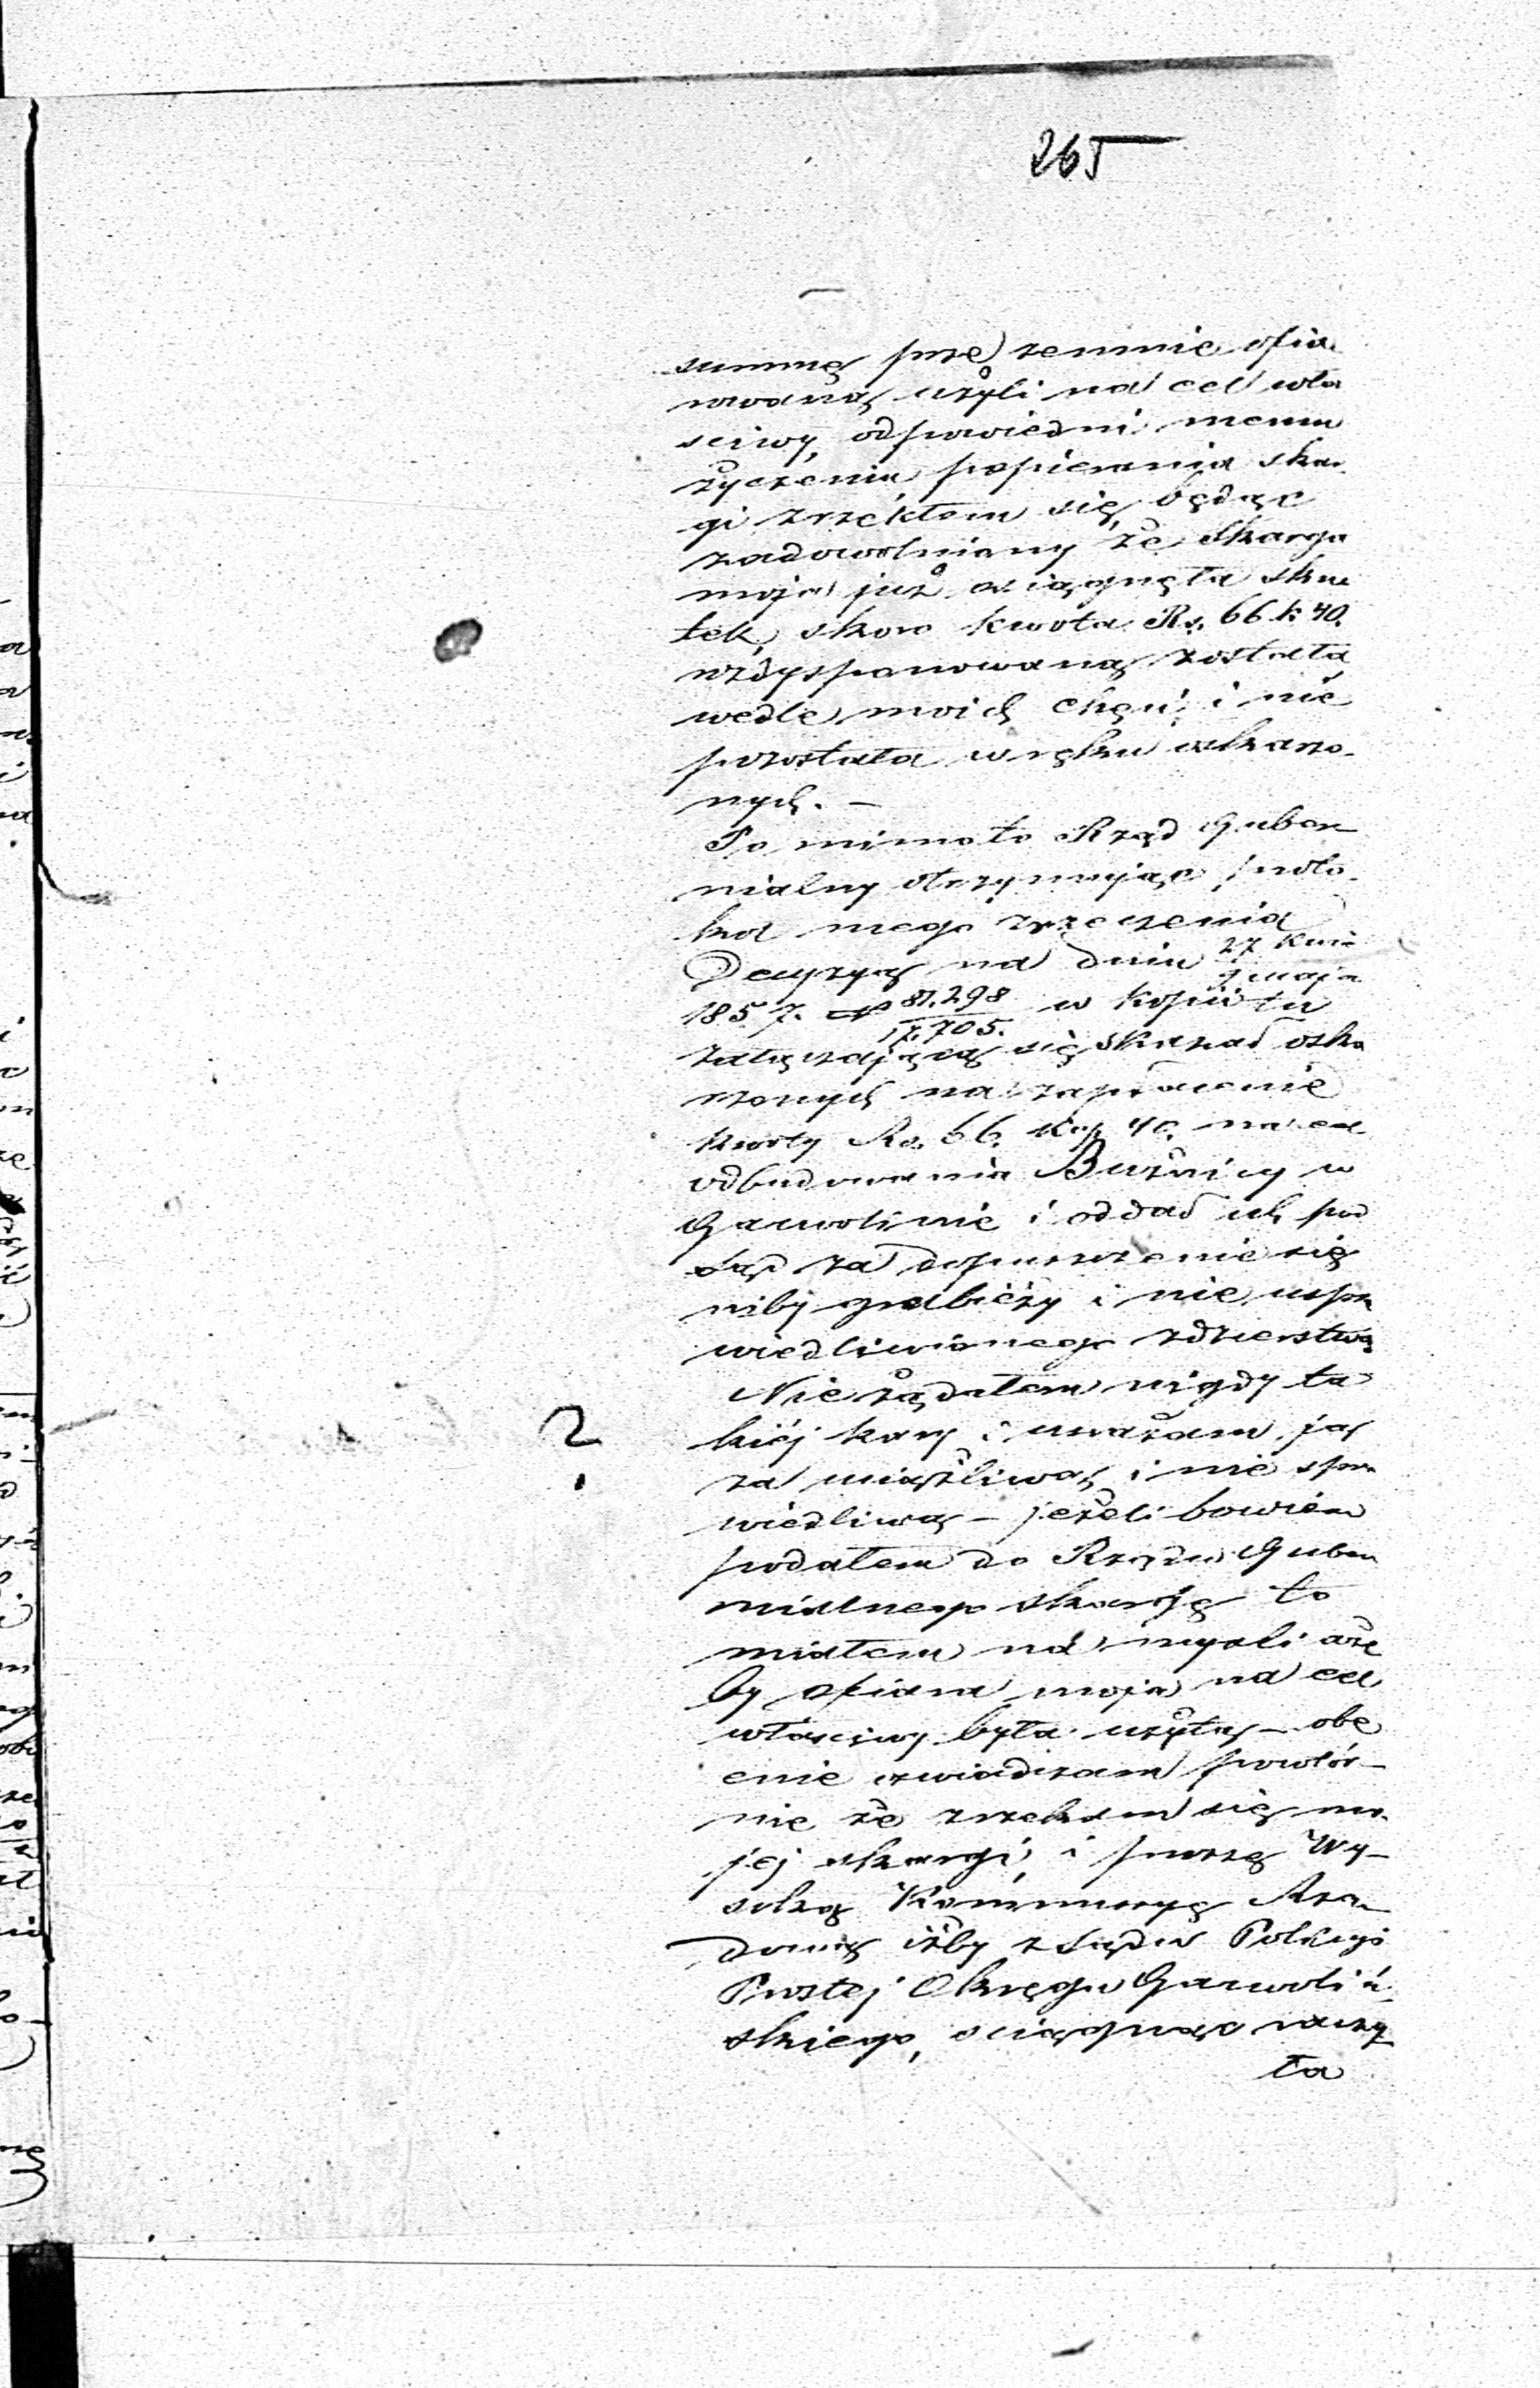 265
summę prze zemnie ofia
rowaną użyli na cel wła
sciwy, odpowiedni memu
życzeniu popierania skar
gi zrzekłem się będąc
zadowolniony że skarga
moja już osiągnęła sku
tek, skoro kwota Rs. 66 k 40.
rozdysponowaną została
wedle moich chęci, i nie
pozostała w ręku oskarżo-
nych. –
Po mimo to Rząd Guber
nialny otrzymując proto-
kol mego zrzeczenia
Decyzyą na dniu 27 Kwie
9 maja
1857. N 81.298 w kopii tu
17.705.
załączającą się skazał oska
rżonych na zapłacenie
kwoty Rs. 66. Kop 40. na cel
odbudowania Bużnicy w
Garwolinie i oddał ich pod
Sąd za dopuszczenie się
niby grabieży i nie uspra
wiedliwionego zdzierstwa
Nie żądałem nigdy ta
kiéj kary i uważam ją
za uciążliwą i nie spra
wiedliwą – jeżeli bowiem
podałem do Rządu Guber
nialnego skargę to
miałem na myśli aże
by ofiara moja na cel
właściwy była użytą – obe
cnie oświadczam powtór-
nie że zrzekłem się mo-
jej skargi, i proszę Wy-
soką Kommissyę Rzą-
dową iżby z Sądu Policyi
Prostej Okręgu Garwoliń-
skiego, ściągnąć raczy
ła
?